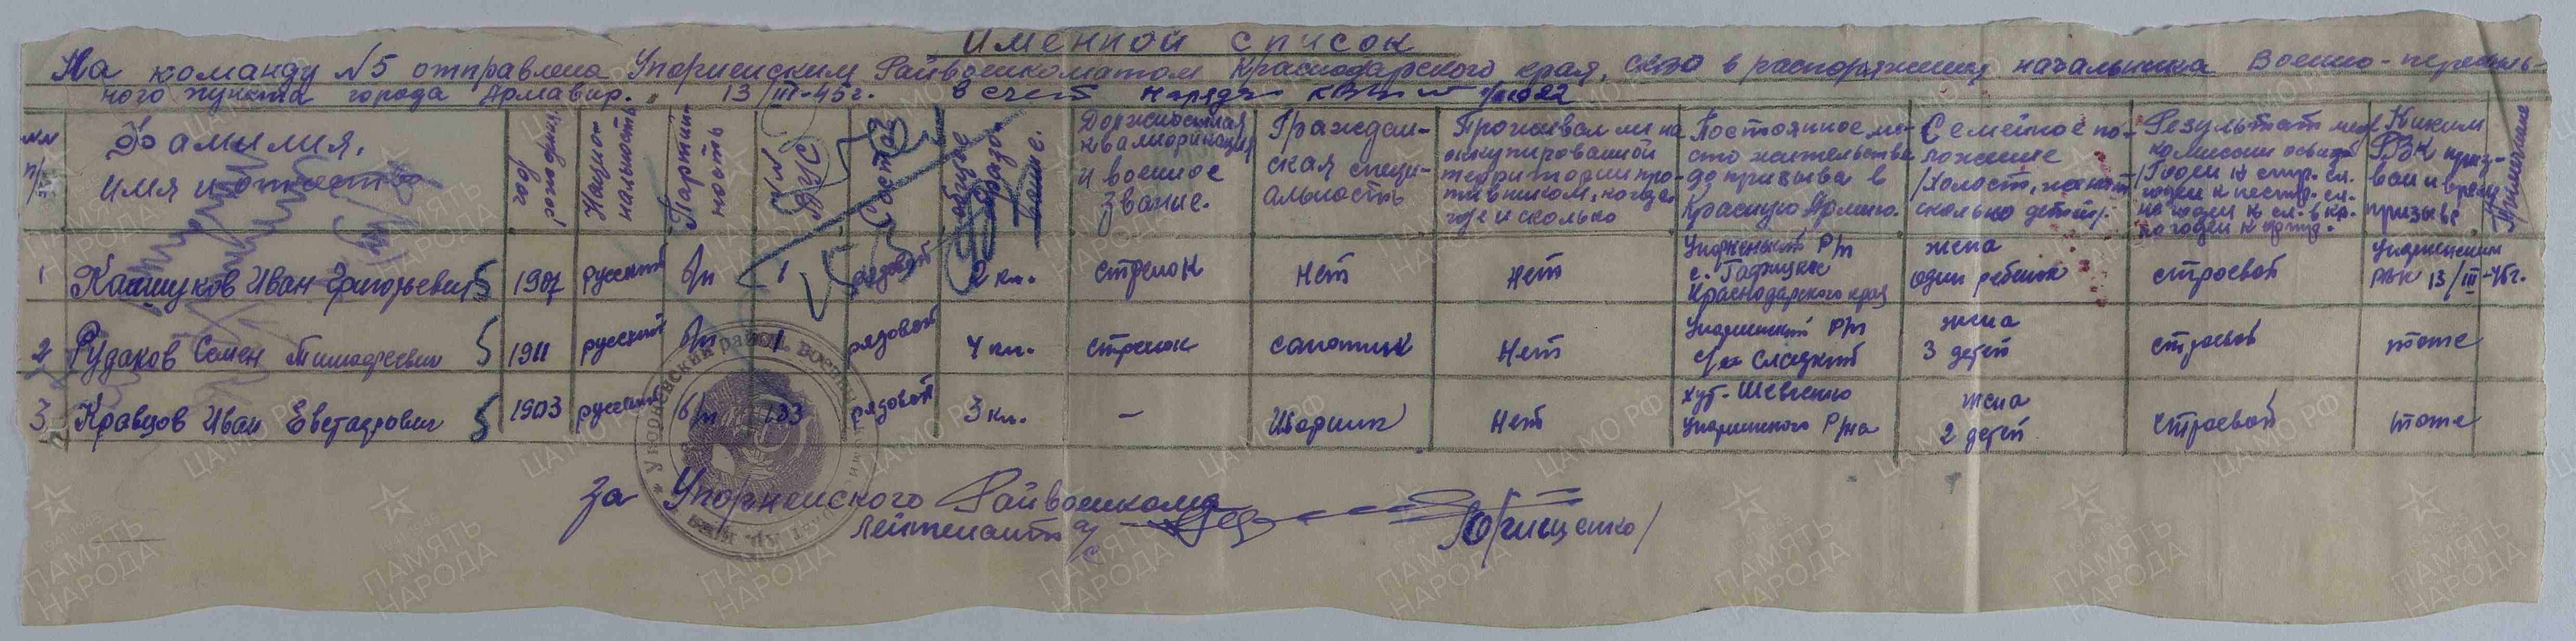 Именной список
На команду №5 отправлена Упорненским Райвоенкоматом Краснодарского края, СКВО в распоряжения начальника Военно-пересыль-
ного пункта города Армавир. 13/III-45г. в счет наряда
№№ п/п
Фамилия,
имя и отчество
год рождения
Национальность
Партийность
№№ ВУС
Состав
Общее образование.
Должностная
квалификация
и военное
звание.
Граждан-
ская специ-
альность
Проживал ли на
оккупированной
территории про-
тивником, когда
где и сколько
Постоянное ме-
сто жительства
до призыва в
Красную Армию.
Семейное по-
ложение
/холост, женат
сколько детей/.
Результат мед.
комиссии освид.
/Годен к стр. сл.
годен к нестр. сл.
Каким
РВК приз-
ван и время
призыва
Примечание
1 Кашуков Иван Григорьевич 1907 русский б/п 1 рядовой 2 кл. стрелок Нет Нет
Упорненский р/н
Краснодарского края
жена
один ребенок
строевой
Упорненским
РВК 13/III-45г.
2 Рудаков Семен Тимофеевич 1911 русский б/п 1 рядовой 4 кл. стрелок сапожник Нет
Упорненский р/н
Сладкий
жена
3 детей
строевой
тоже
3 Кравцов Иван Евстафович 1903 русский б/п 133 рядовой 3 кл. — Нет
хут. Шевченко
Упорненского р/на
жена
2 детей
строевой
тоже
За Упорненского Райвоенкома
Лейтенант а/с
/Юрищенко/
ЦА МО РФ
ПАМЯТЬ
НАРОДА
1941-1945